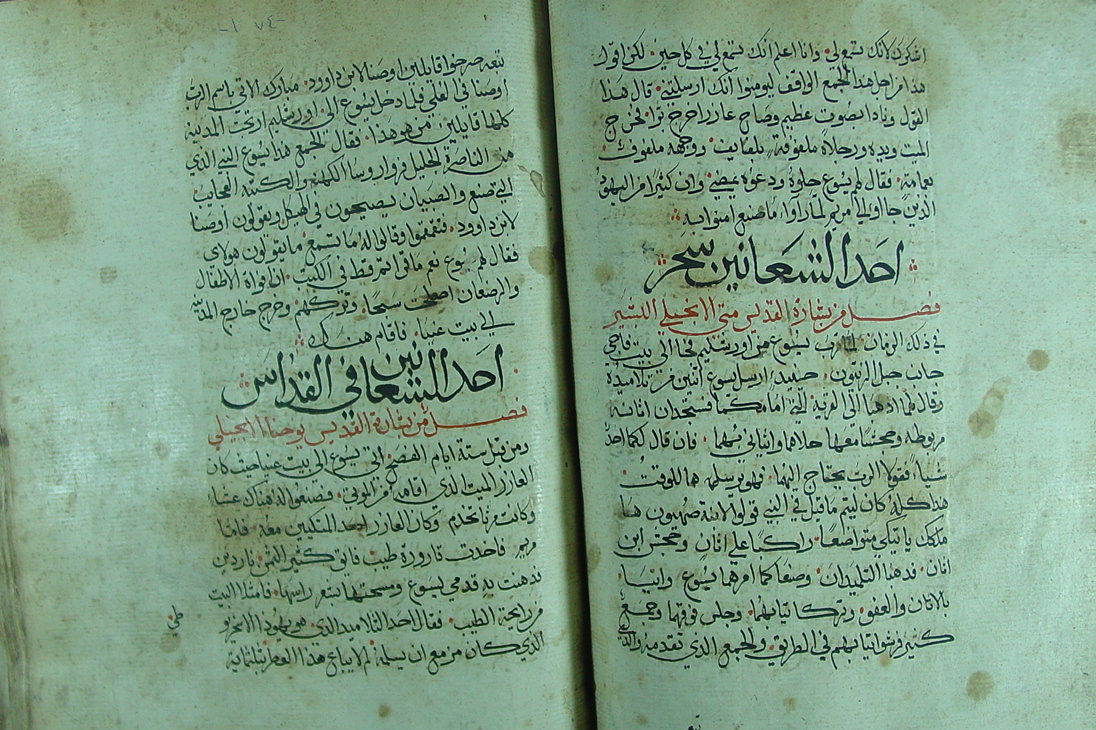 اشكرك انك تسمع لي وانا اعلم انك تسمع لي في كل حين لكن اقول
هذا من اجل هذا الجمع الواقف ليومنوا انك ارسلتني قال هذا
القول ونادا بصوت عظيم وصاح عازر اخرج برا فخرج
الميت ويديه ورجلاه ملفوفة بلفايف ووجهه ملفوف
بعمامة فقال لهم يسوع حلوه ودعوه يمضي وان كثيرا من اليهود
الذين جاوا الي مريم لما راوا ما صنع امنوا به
احد الشعانين سحر
فصل من بشارة القديس متى الانجيلي البشير
في ذلك الزمان لما قرب يسوع من اورشليم فجا الي بيت فاجي
جانب جبل الزيتون حينيد ارسل يسوع اثنين من تلاميده
وقال لهما ادهبا الي القرية التي امامكما فستجدان اتانة
مربوطة وجحشا معها حلاهما واتياني بهما فان قال لكما احد
شيا فقولا الرب يحتاج اليهما فهو يرسلهما للوقت
هذا كله كان ليتم ما قيل في النبي قولوا لابنة صهيون ها
ملكك ياتيكي متواضعا راكبا علي اتان وجحش ابن
اتان فدهبا التلميدان وصنعا كما امرهما يسوع واتيا
بالاتان والعفو وتركا تيابهما وجلس فوقهما وجمع
كثير فرشوا تيابهم في الطريق والجمع الدي تقدمه والدي
١٧٤
تبعه صرخوا قايلين اوصنا لابن داوود مبارك الاتي باسم الرب
اوصنا في العلي فلما دخل يسوع الي اورشليم ارتجت المدينة
كلها قايلين من هو هذا فقال الجمع هذا يسوع النبي الذي
من الناصرة الجليل فراوا روسا الكهنة والكتبة العجايب
التي صنع والصبيان يصيحون في الهيكل ويقولون اوصنا
لابن داوود فتقمقموا وقالوا له ما تسمع ما يقولون هولاي
فقال لهم يسوع نعم ما قراتم قط في الكتب ان من افواه الاطفال
والرضعان اصلحت سبحا وتركهم وخرج خارج المدينة
الي بيت عنيا فاقام هناك
احد الشعانين في القداس
فصل من بشارة القديس يوحنا الانجيلي
ومن قبل ستة ايام الفصح اتي يسوع الي بيت عنيا حيث كان
العازر الميت الدي اقامه من الموتي فصنعوا له هناك عشا
وكانت مرتا تخدم وكان العازر احد المتكيين معه فاما
مريم فاخدت قارورة طيب فايق كثير الثمن ناردين
فدهنت به قدمي يسوع ومسحتهما بشعر راسها فامتلا البيت
من رايحة الطيب فقال احد التلاميد الدي هو يهودا الاسخريو
طي
الدي كان مزمع ان يسلمه لم لا يباع هدا العطر بثلثماية